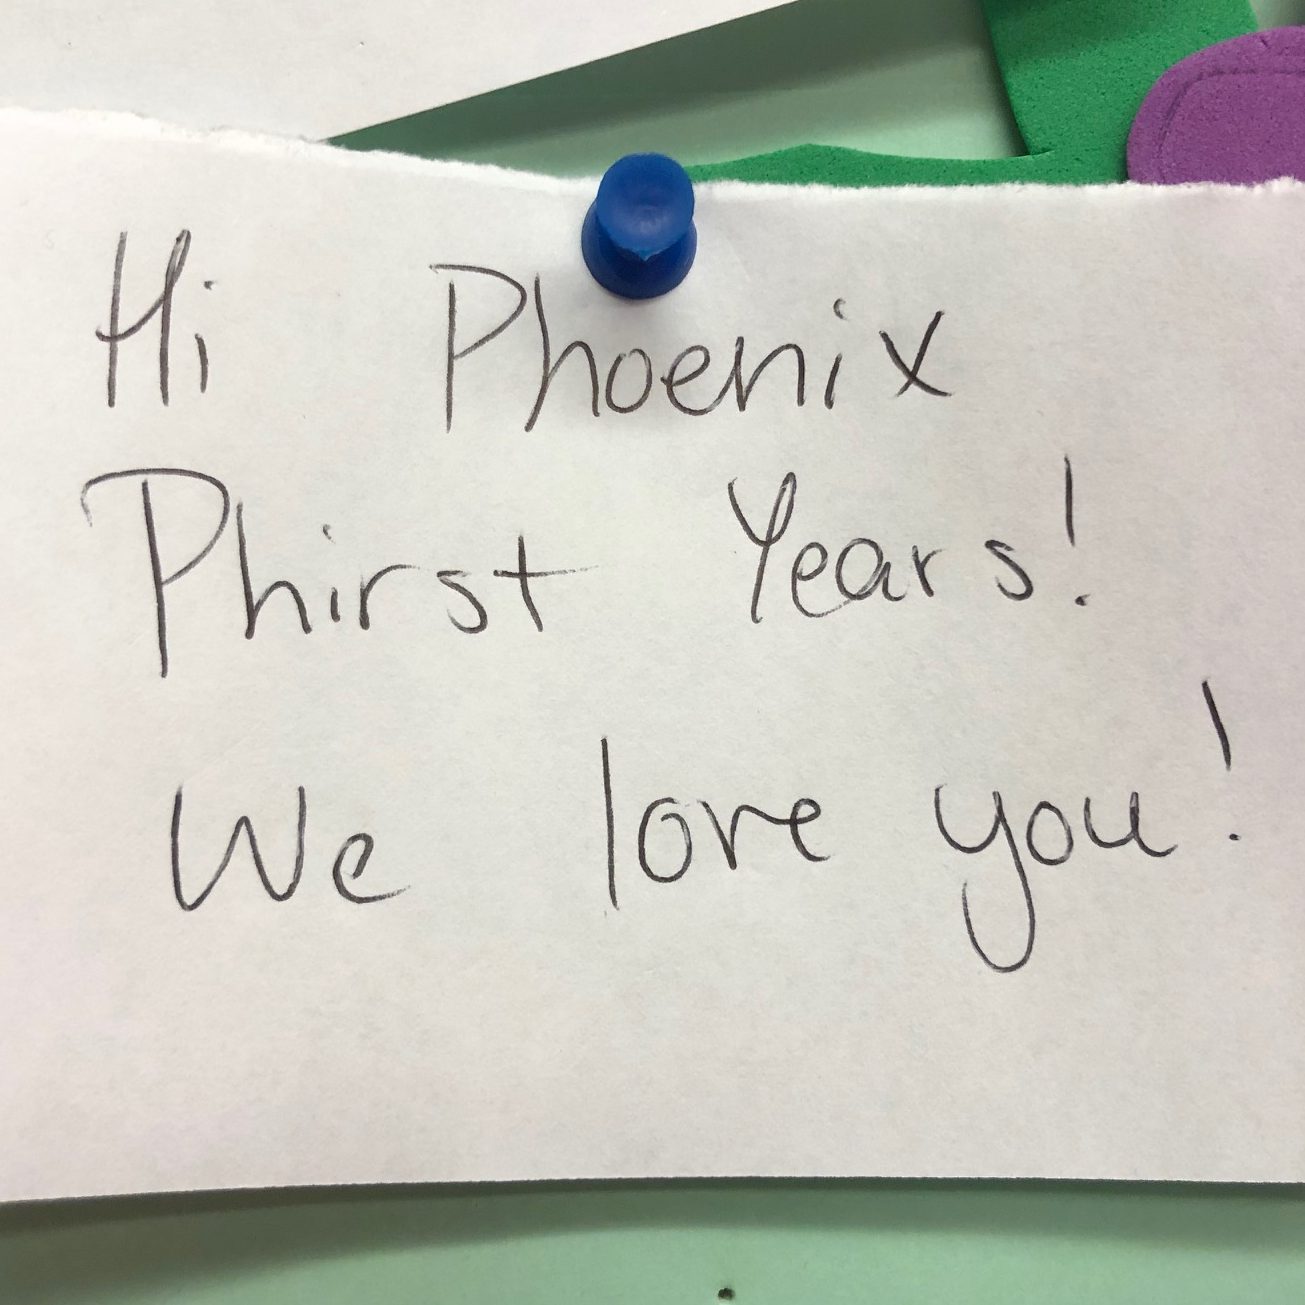 Hi Phoenix
Phirst Years!
We love you!